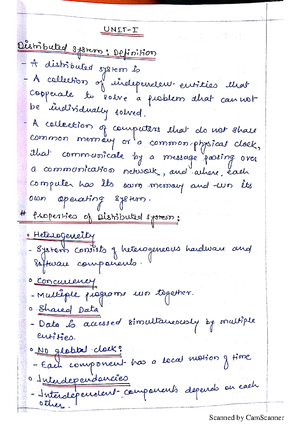 UNIT-I
Distributed System: Definition
- A distributed system is
- A collection of independent entities that
cooperate to solve a problem that cannot
be individually solved.
- A collection of computers that do not share
common memory or a common physical clock,
that communicate by a message passing over
a communication network, and where each
computer has its own memory and run its
own operating system.
# Properties of Distributed System:
Heterogeneity
- System consists of heterogeneous hardware and
software components.
Concurrency
- Multiple programs run together.
Shared Data
- Data is accessed simultaneously by multiple
entities.
No global clock:
- Each component has a local notion of time
Interdependencies
- Interdependent components depends on each
other.
Scanned by CamScanner